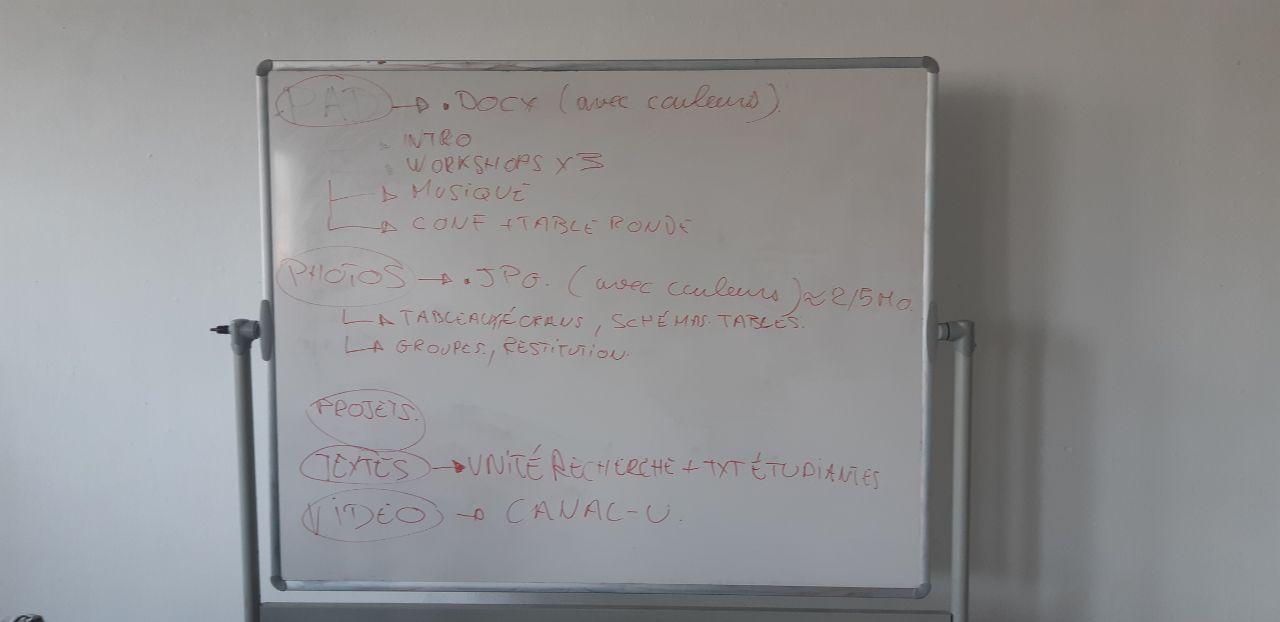 PAD → .DOCX (avec couleurs).
INTRO
WORKSHOPS X 3
→ MUSIQUE
→ CONF + TABLE RONDE
PHOTOS → .JPG. (avec couleurs) ≈ 2/5 Mo.
→ TABLEAUX/ÉCRANS, SCHÉMAS. TABLES.
→ GROUPES, RESTITUTION.
PROJETS.
TEXTES → UNITÉ RECHERCHE + TXT ÉTUDIANTES
VIDÉO → CANAL-U.